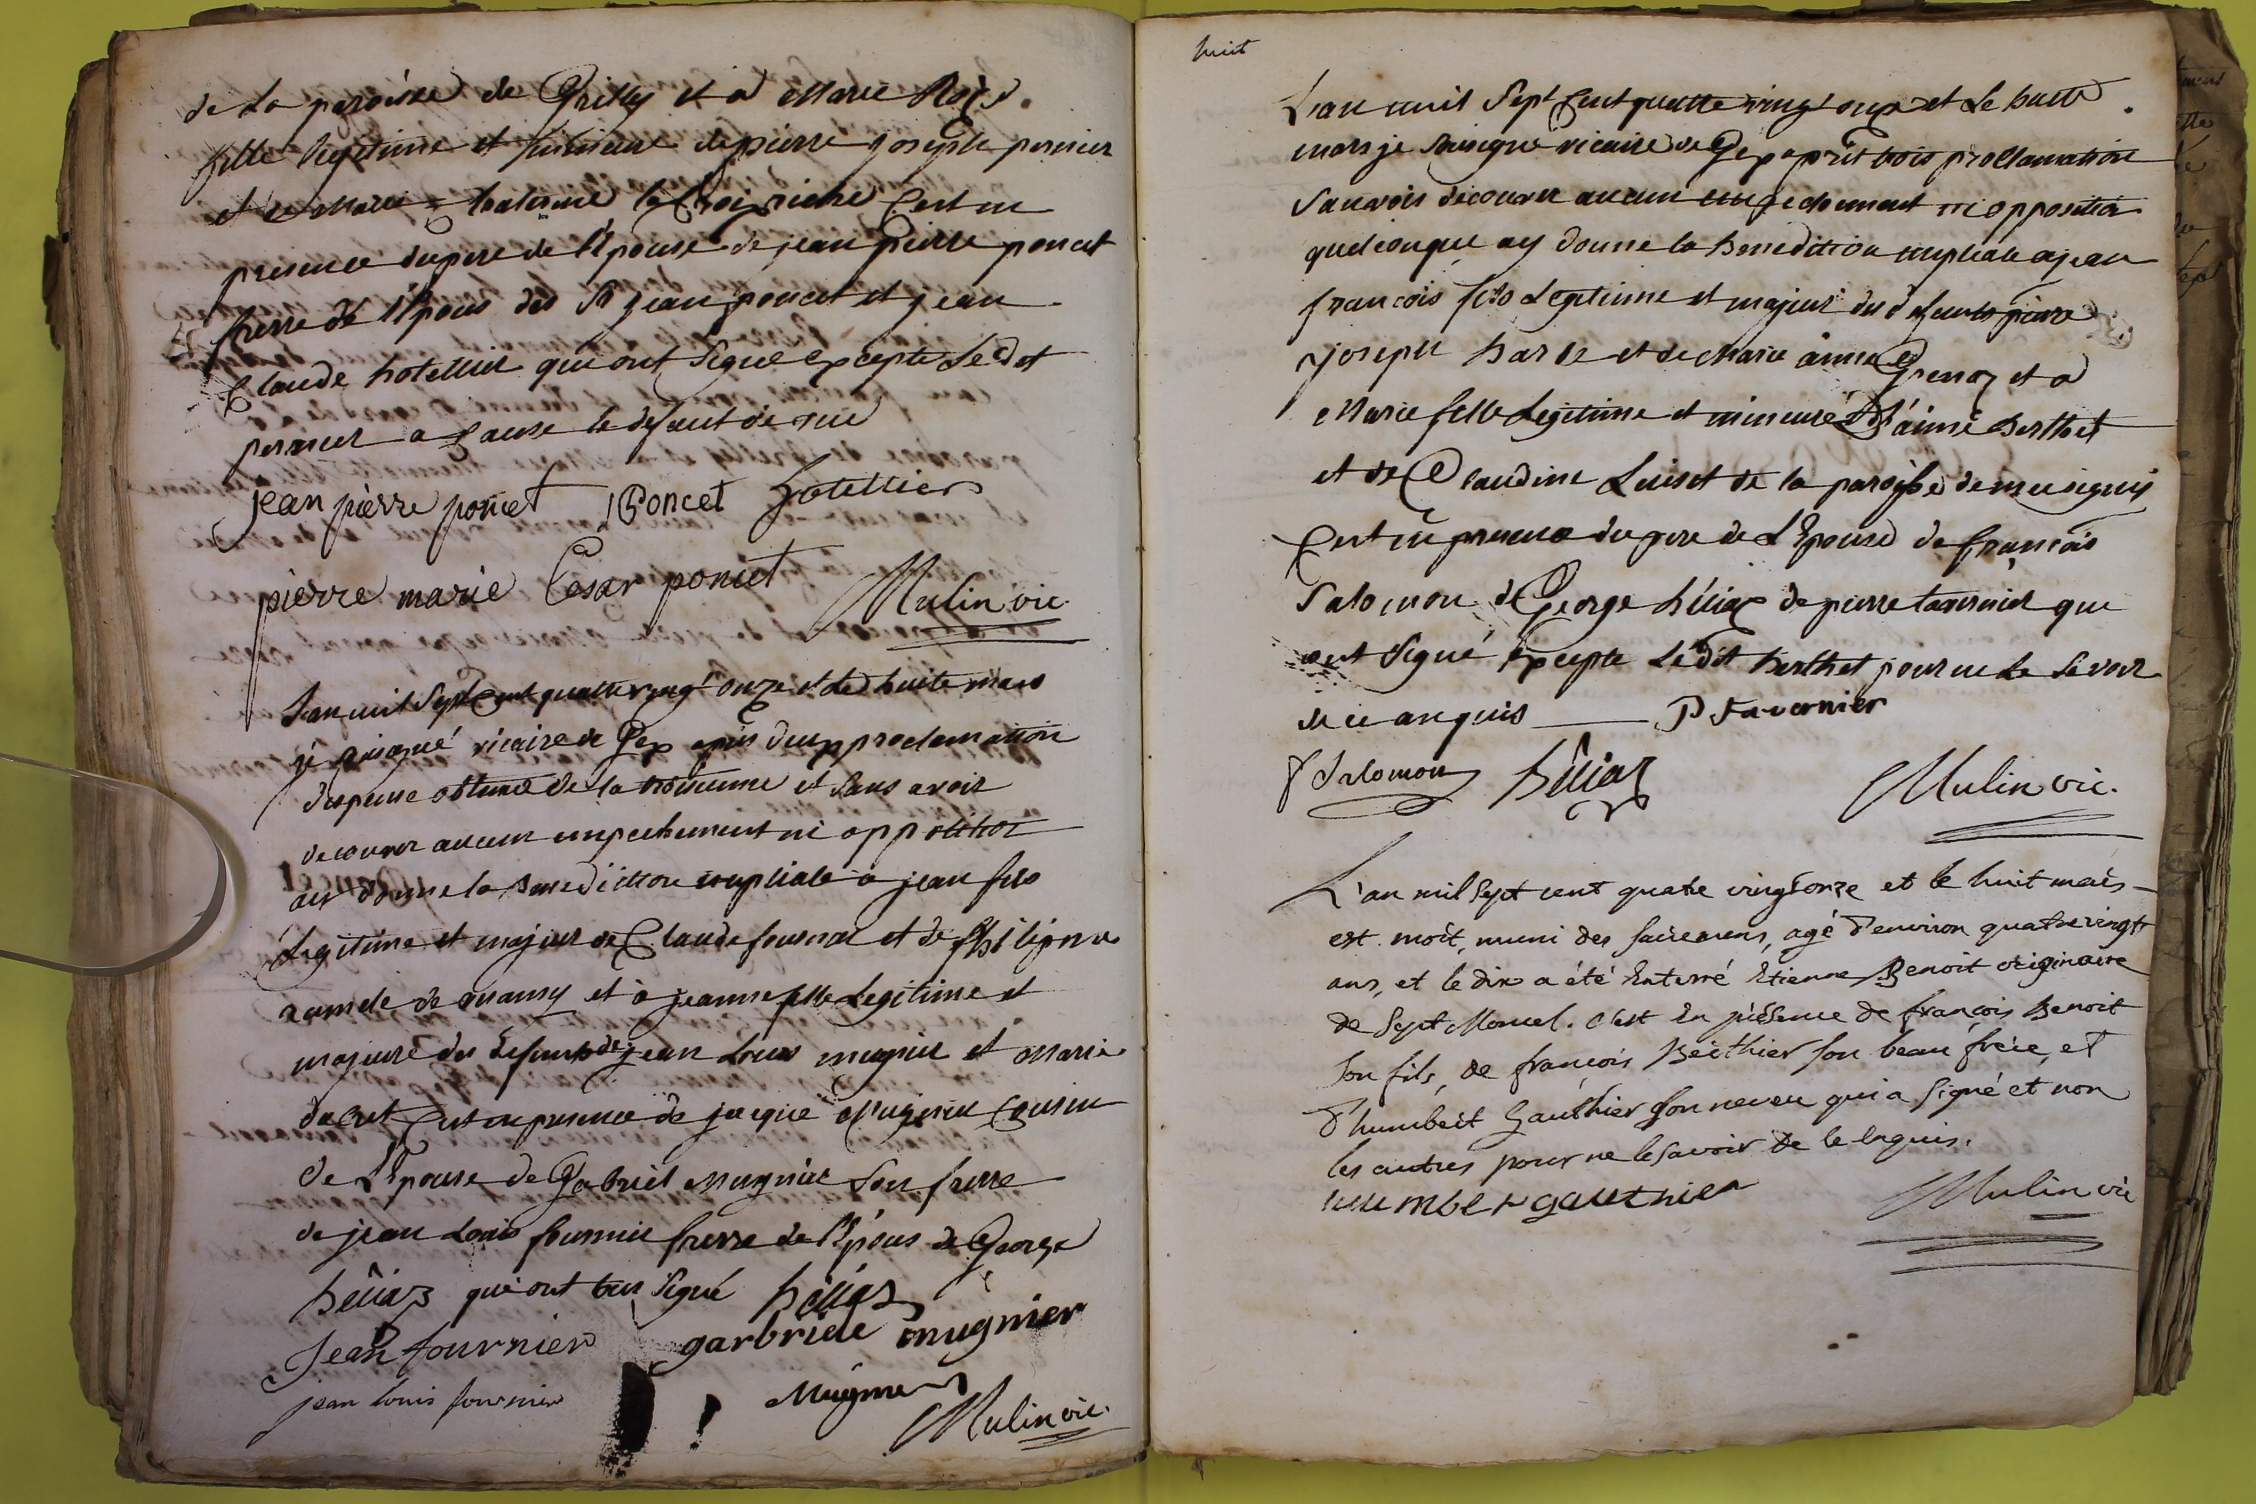 de La paroisse de Grilly et a Marie Roze
fille legitime et mineure de pierre joseph pernier
et de Marie
presence du pere de l'Epouse de jean pierre poncet
frerre de l'Epous des Sr jean poncet et jean
Claude hotellier qui ont signé excepte Ledt
pernier a cause le defaut de vue
jean pierre poncet JPoncet hotelliers
pierre marie César poncet Mulin vic.
L'an mil Sept Cent quatre vingt onze et Le huite mars
je sousigné vicaire de Gex apres deux proclamation
dispense obtenue de la troisieme et Sans avoir
decouver aucun empechement ni opposition
ay donne la Benediction nupliale a jean fils
Legitime et majeur de Claude fournier et de
de et a jeanne fille Legitime et
majeure des defunts de jean Louis mugnier et Marie
Cest en presence de jacque Mugnier Cousin
de L'Epouse de Gabriel Mugnier Son frerre
de jean Louis fournier frerre de l'Epous de George
héliaz qui ont tous signé héliaz
Jean fournier garbriele mugnier
jean louis fournier Mugnier
Mulin vic.
huit
L'an mil Sept Cent quatre vingt onze et Le huite
mars je sousigné vicaire de Gex apres trois proclamation
San avoir decouver aucun empechement ni opposition
quelconque ay donne la Benediction nupliale a jean
francois fils Legitime et majeur des defunts pierre
joseph et de Marie anne Grenoz et a
Marie fille Legitime et mineure d'aimé Berthet
et de Claudine Luiset de la paroisse de
Cest en presence du pere de L'Epouse de françois
Salomon de George héliaz de pierre tavernier qui
ont signé excepte Ledit Berthet pour ne Le Savoir
de ce anquis P Tavernier
f Salomon héliaz Mulin vic.
L'an mil Sept cent quatre vingt onze et le huit mars
est mort, muni des sacremens, agé d'environ quatre vingt
ans, et le dix a été Enterré Etienne Benoit originaire
de Sept Moncel. c'est En présence de françois Benoit
Son fils, de françois Berthier son beau frére, et
d'humbert Gauthier son neveu qui a Signé et non
les autres pour ne le savoir de le enquis.
humbert gauthier Mulin vic